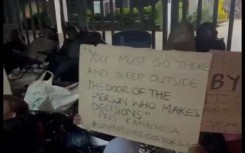 "YOU MUST GO THERE
AND SLEEP OUTSIDE
THE DOOR OF THE
PERSON WHO MAKES
DECISIONS"
PRES RAMAPHOSA
BY